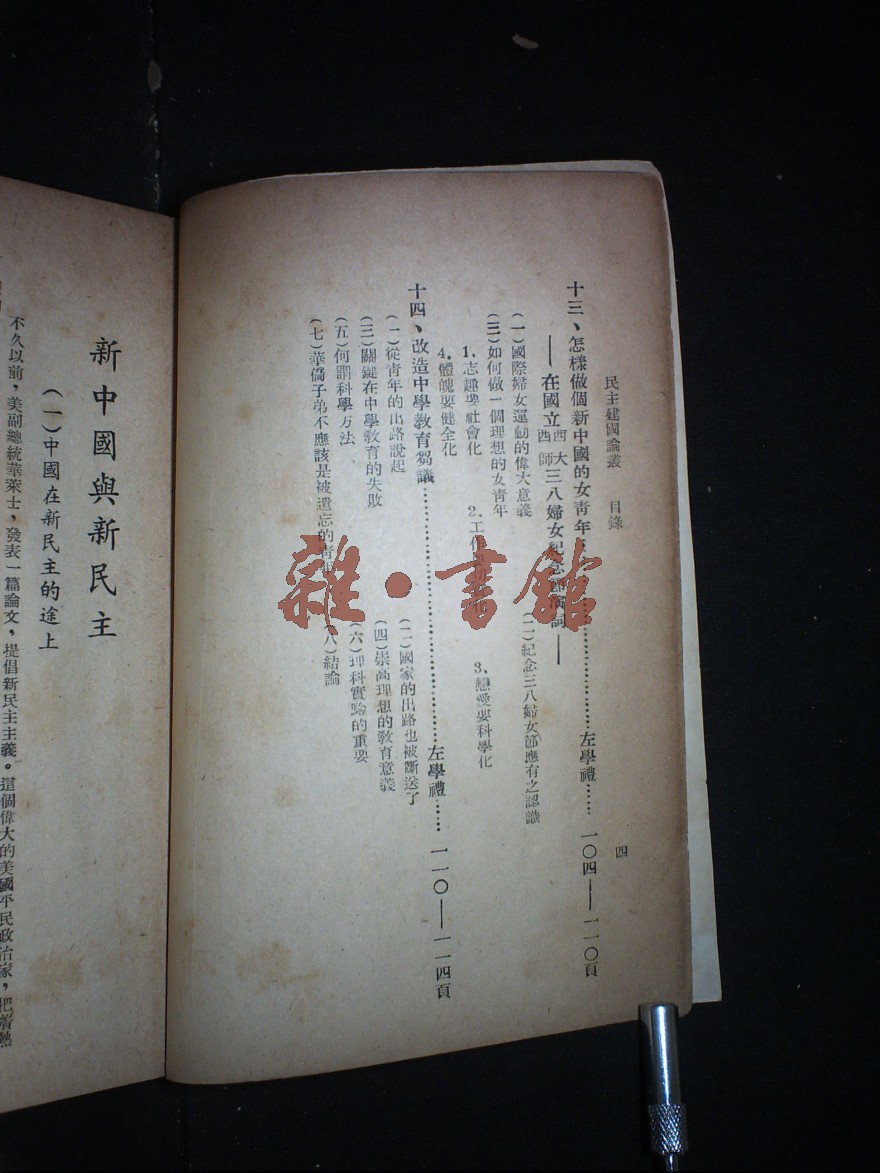 民主建國論叢 目錄 四
十三、怎樣做個新中國的女靑年……左學禮……一〇四——一一〇頁
——在國立西大西師三八婦女紀念節演詞——
(一)國際婦女運動的偉大意義 (二)紀念三八婦女節應有之認識
(三)如何做一個理想的女靑年
1.志趣要社會化 2.工作要 3.戀愛要科學化
4.體魄要健全化
十四、改造中學敎育芻議……左學禮……一一〇——一一四頁
(一)從靑年的出路說起 (二)國家的出路也被斷送了
(三)關鍵在中學敎育的失敗 (四)崇高理想的敎育意義
(五)何謂科學方法 (六)理科實驗的重要
(七)華僑子弟不應該是被遺忘的靑年 (八)結論
雜·書館
新中國與新民主
(一)中國在新民主的途上
不久以前,美副總統華萊士,發表一篇論文,提倡新民主主義。這個偉大的美國平民政治家,把着熱